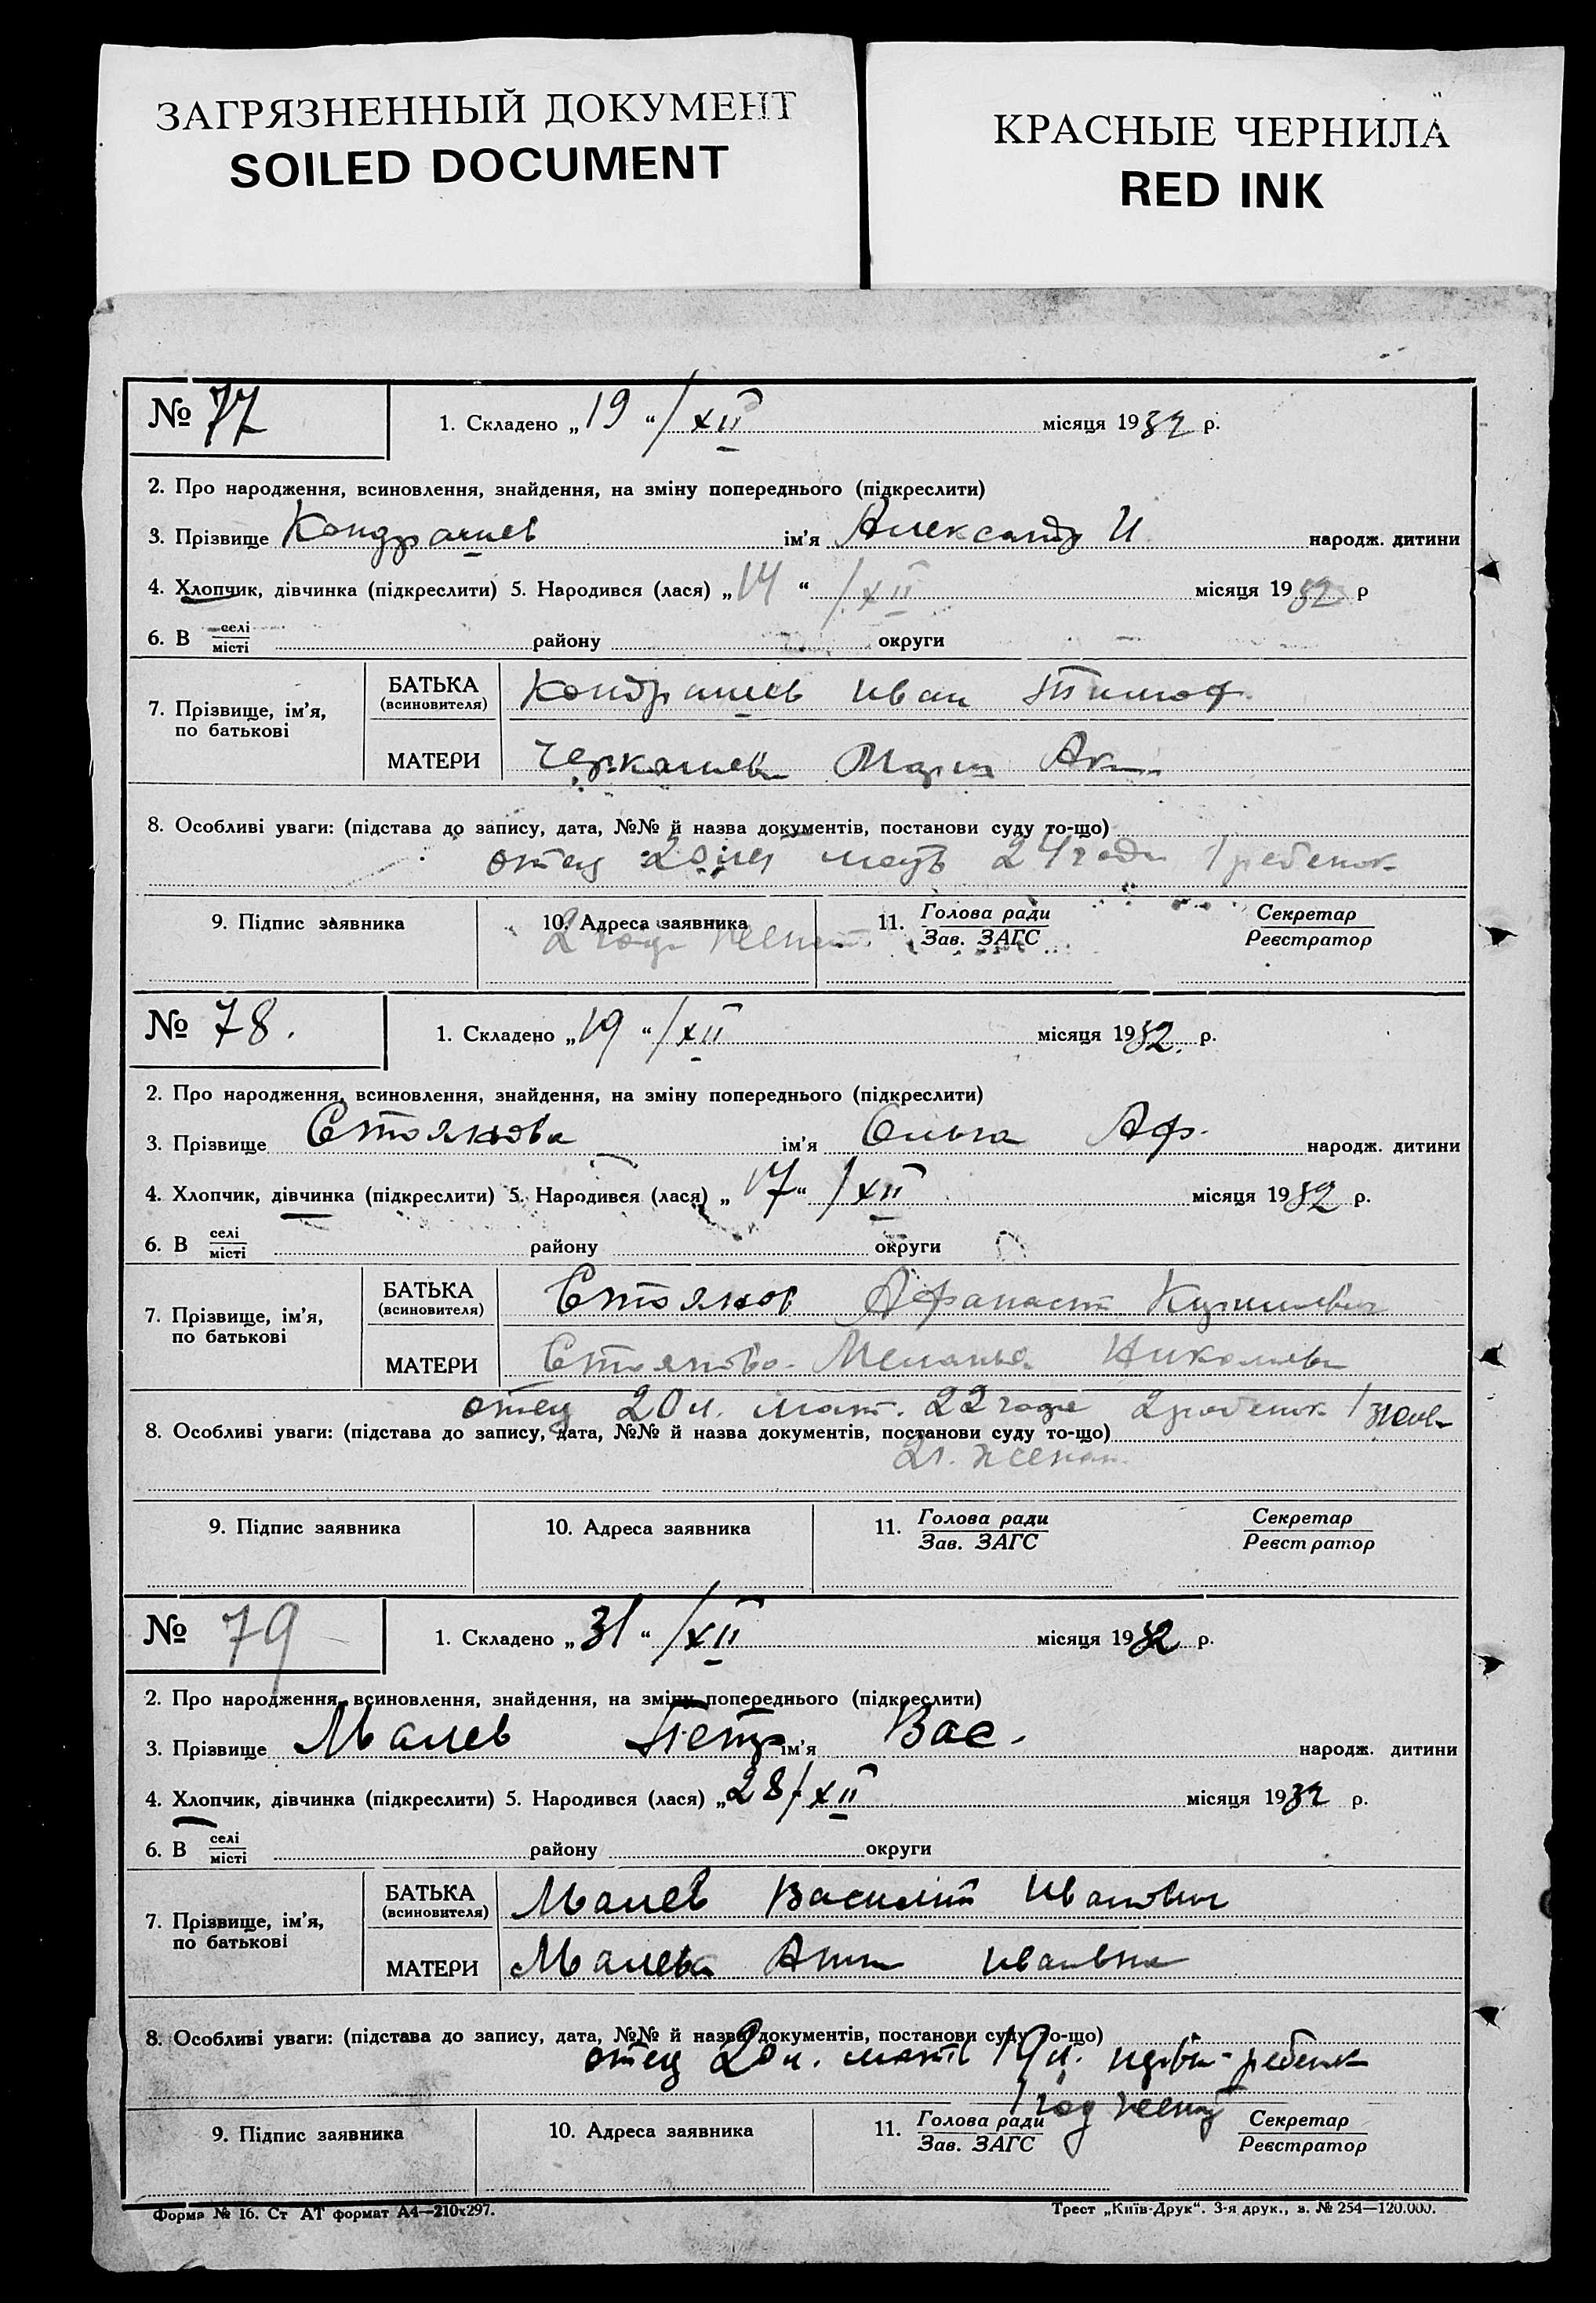 ЗАГРЯЗНЕННЫЙ ДОКУМЕНТ
SOILED DOCUMENT
КРАСНЫЕ ЧЕРНИЛА
RED INK
№ 77
1. Складено „19“ /XII місяця 1932 р.
2. Про народження, всиновлення, знайдення, на зміну попереднього (підкреслити)
3. Прізвище Кондрашев ім’я Александр И. народж. дитини
4. Хлопчик, дівчинка (підкреслити) 5. Народився (лася) „14“ /XII місяця 1932 р
6. В селі місті району округи
7. Прізвище, ім’я, по батькові
БАТЬКА (всиновителя) Кондрашев Иван Тимоф.
МАТЕРИ Мария Ак
8. Особливі уваги: (підстава до запису, дата, №№ й назва документів, постанови суду то-що)
отец 20 лет мать 24 года 1 ребенок
2 года женат
9. Підпис заявника 10. Адреса заявника 11. Голова ради Зав. ЗАГС Секретар Реєстратор
№ 78.
1. Складено „19“ /XII місяця 1932. р.
2. Про народження, всиновлення, знайдення, на зміну попереднього (підкреслити)
3. Прізвище Стоянова ім’я Ольга Аф. народж. дитини
4. Хлопчик, дівчинка (підкреслити) 5. Народився (лася) „17“ /XII місяця 1932 р.
6. В селі місті району округи
7. Прізвище, ім’я, по батькові
БАТЬКА (всиновителя) Стоянов Афанасий
МАТЕРИ Стоянова Меланья Николаевн
отец 20 л. мат. 22 года 2 ребенок 1
8. Особливі уваги: (підстава до запису, дата, №№ й назва документів, постанови суду то-що)
2 г. женат.
9. Підпис заявника 10. Адреса заявника 11. Голова ради Зав. ЗАГС Секретар Реєстратор
№ 79
1. Складено „31“ /XII місяця 1932 р.
2. Про народження, всиновлення, знайдення, на зміну попереднього (підкреслити)
3. Прізвище Малев Петр ім’я Вас. народж. дитини
4. Хлопчик, дівчинка (підкреслити) 5. Народився (лася) „28/XII місяця 1932 р.
6. В селі місті району округи
7. Прізвище, ім’я, по батькові
БАТЬКА (всиновителя) Малев Василий Иванович
МАТЕРИ Малева Анна Ивановна
8. Особливі уваги: (підстава до запису, дата, №№ й назва документів, постанови суду то-що)
отец 20 л. мать 19 л. ребенк
1 год женат
9. Підпис заявника 10. Адреса заявника 11. Голова ради Зав. ЗАГС Секретар Реєстратор
Форма № 16. Ст АТ формат А4—210х297.
Трест „Київ-Друк“. 3-я друк., з. № 254—120.000.